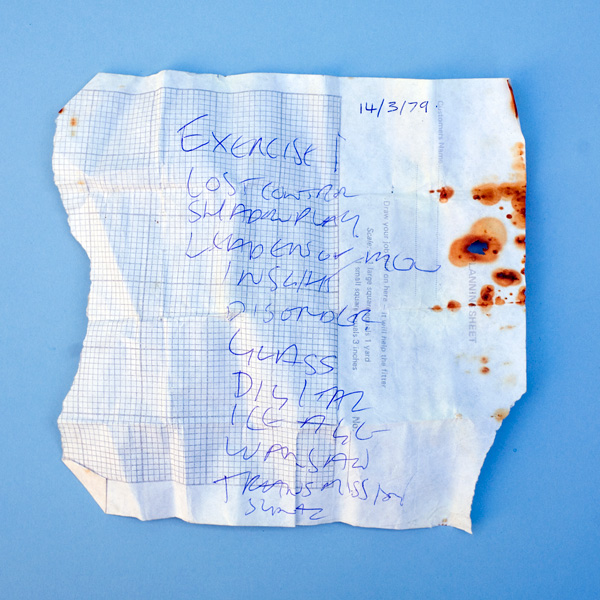 14/3/79.
EXERCISE 1
LOST CONTROL
SHADOWPLAY
LEADERS OF MEN
INSIGHT
DISORDER
GLASS
DIGITAL
ICE AGE
WARSAW
TRANSMISSION
Draw your on here - it will help the fitter
Scale: large square equals 1 yard
small square equals 3 inches
PLANNING SHEET